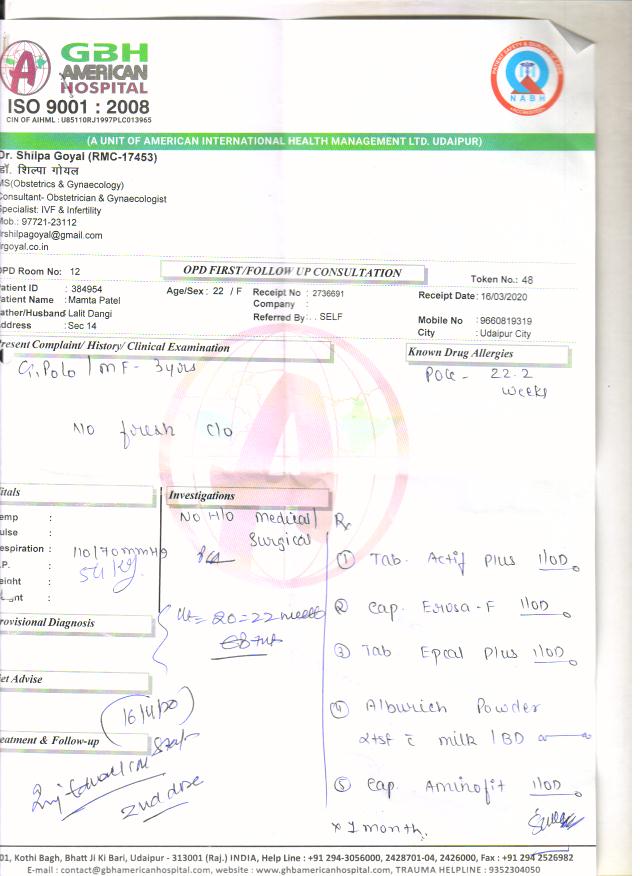 GBH
AMERICAN
HOSPITAL
ISO 9001 : 2008
CIN OF AIHML : U85110RJ1997PLC013965
PATIENT SAFETY & QUALITY OF CARE
NABH
(A UNIT OF AMERICAN INTERNATIONAL HEALTH MANAGEMENT LTD. UDAIPUR)
Dr. Shilpa Goyal (RMC-17453)
डॉ. शिल्पा गोयल
MS(Obstetrics & Gynaecology)
Consultant- Obstetrician & Gynaecologist
Specialist: IVF & Infertility
Mob.: 97721-23112
rshilpagoyal@gmail.com
rgoyal.co.in
OPD Room No: 12
OPD FIRST/FOLLOW UP CONSULTATION
Token No.: 48
Patient ID : 384954
Age/Sex : 22 / F
Receipt No : 2736691
Receipt Date: 16/03/2020
Patient Name : Mamta Patel
Company :
Father/Husband Lalit Dangi
Referred By : . . SELF
Mobile No : 9660819319
Address : Sec 14
City : Udaipur City
Present Complaint/ History/ Clinical Examination
Known Drug Allergies
G1P0L0 / MF - 3 yrs
POG - 22.2
weeks
No fresh c/o
Vitals
Investigations
No H/o medical/
surgical
Temp :
Pulse :
Respiration :
110/70 mmHg
B.P. :
54 kg
Weight :
P/A
Ut = 20-22 weeks
Provisional Diagnosis
Diet Advise
16/4/20
Treatment & Follow-up
Inj
Stat
2nd dose
Rx
① Tab. Actif Plus 1 OD
② Cap. Esrosa-F 1 OD
③ Tab Epcal Plus 1 OD
④ Alburich Powder
2tsf c̄ milk / BD
⑤ Cap. Aminofit 1 OD
x 1 month.
01, Kothi Bagh, Bhatt Ji Ki Bari, Udaipur - 313001 (Raj.) INDIA, Help Line : +91 294-3056000, 2428701-04, 2426000, Fax : +91 294 2526982
E-mail : contact@gbhamericanhospital.com, website : www.gbhamericanhospital.com, TRAUMA HELPLINE : 9352304050